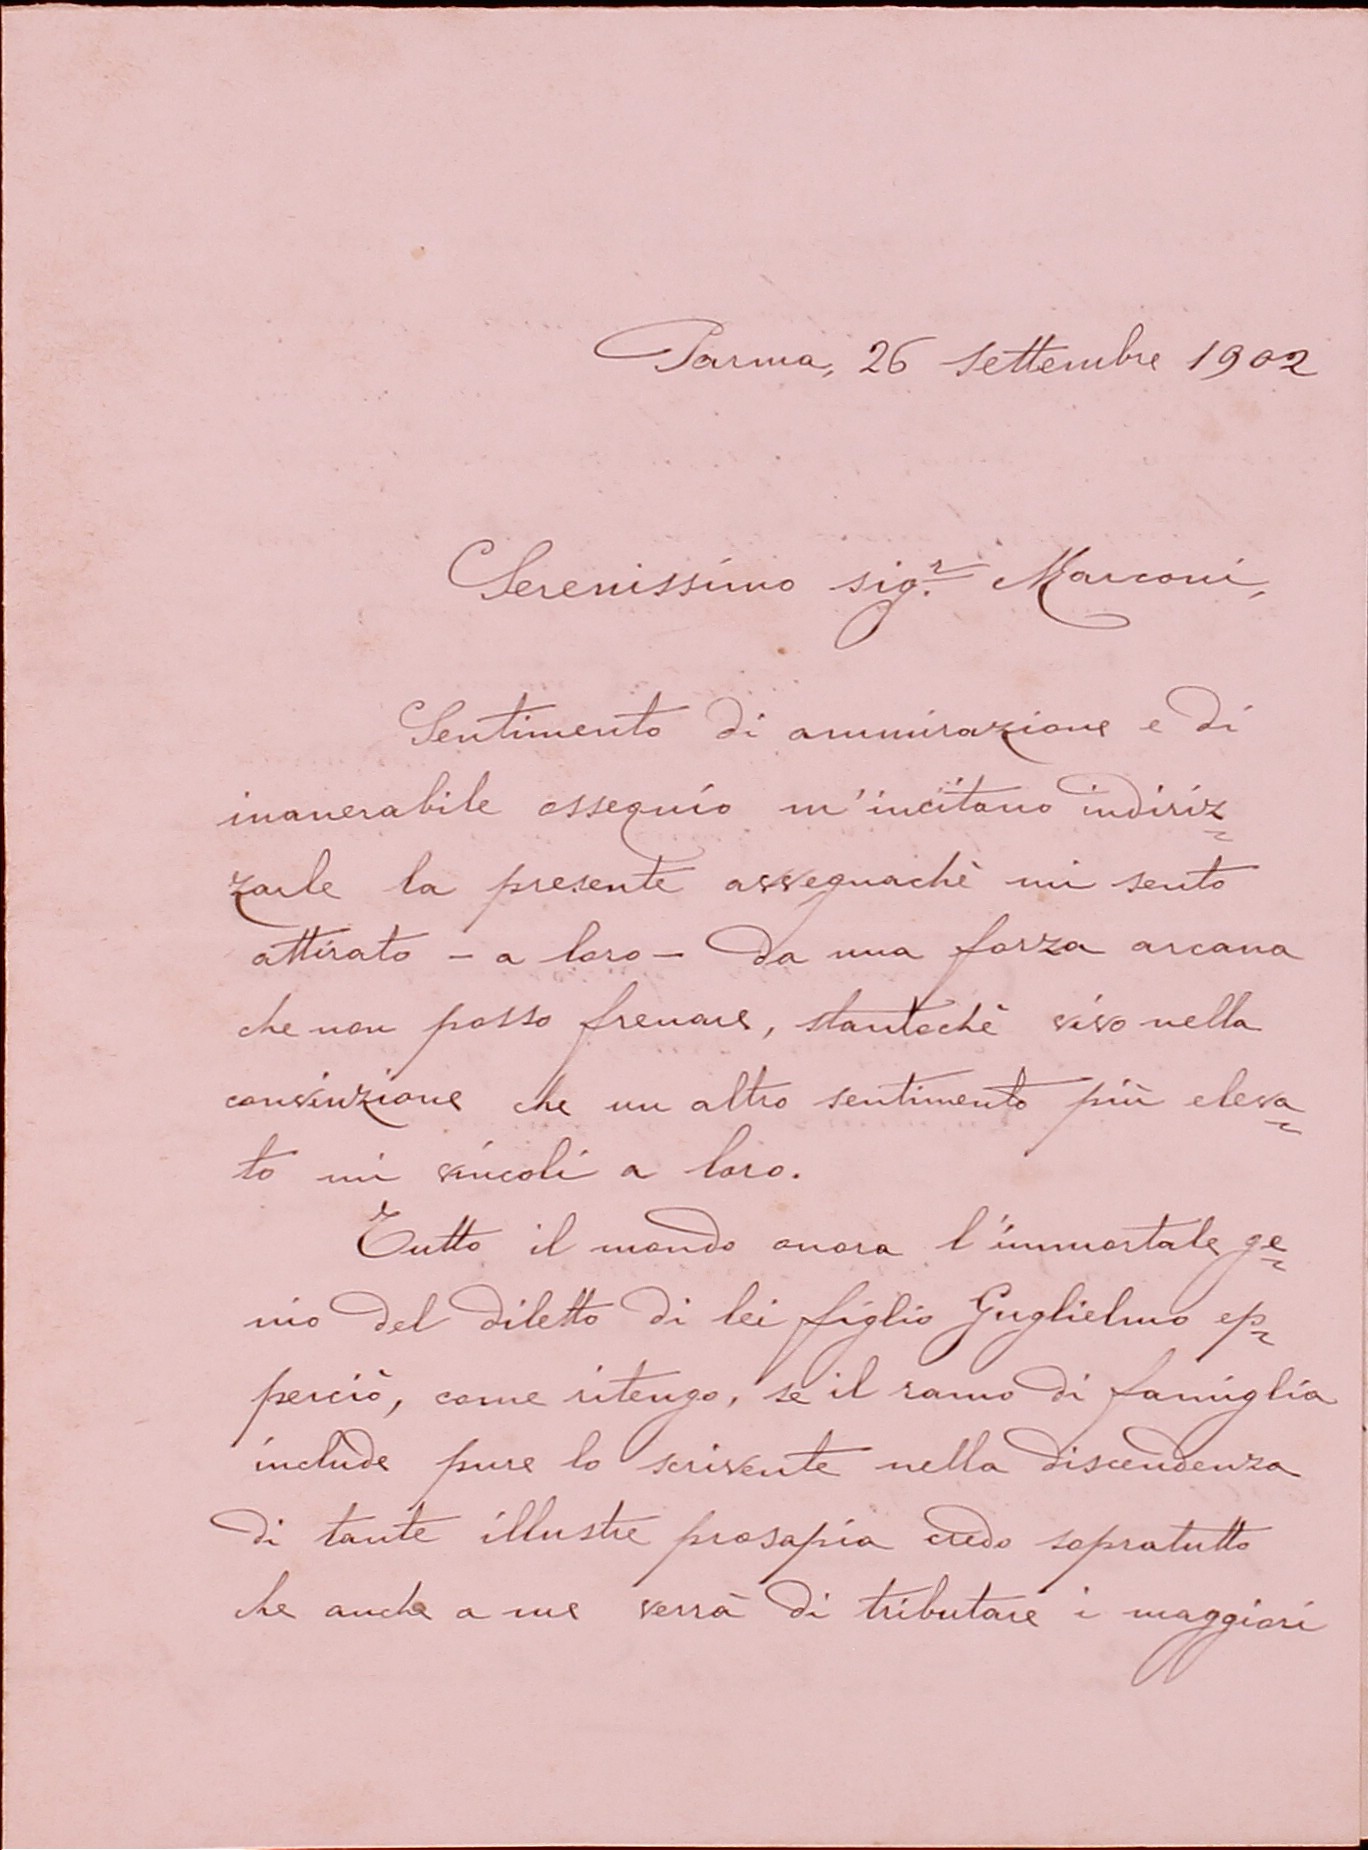 Parma, 26 settembre 1902
Serenissimo sig.r Marconi,
Sentimento di ammirazione e di
inanerabile ossequio m'incitano indiriz=
zarle la presente assegnachè mi sento
attirato - a loro - da una forza arcana
che non posso frenare, stantochè vivo nella
convinzione che un altro sentimento più eleva=
to mi vincoli a loro.
Tutto il mondo onora l'immortale ge=
nio del diletto di lei figlio Guglielmo ep=
perciò, come ritengo, se il ramo di famiglia
include pure lo scrivente nella discendenza
di tante illustre prosapia credo sopratutto
che anche a me verrà di tributare i maggiori